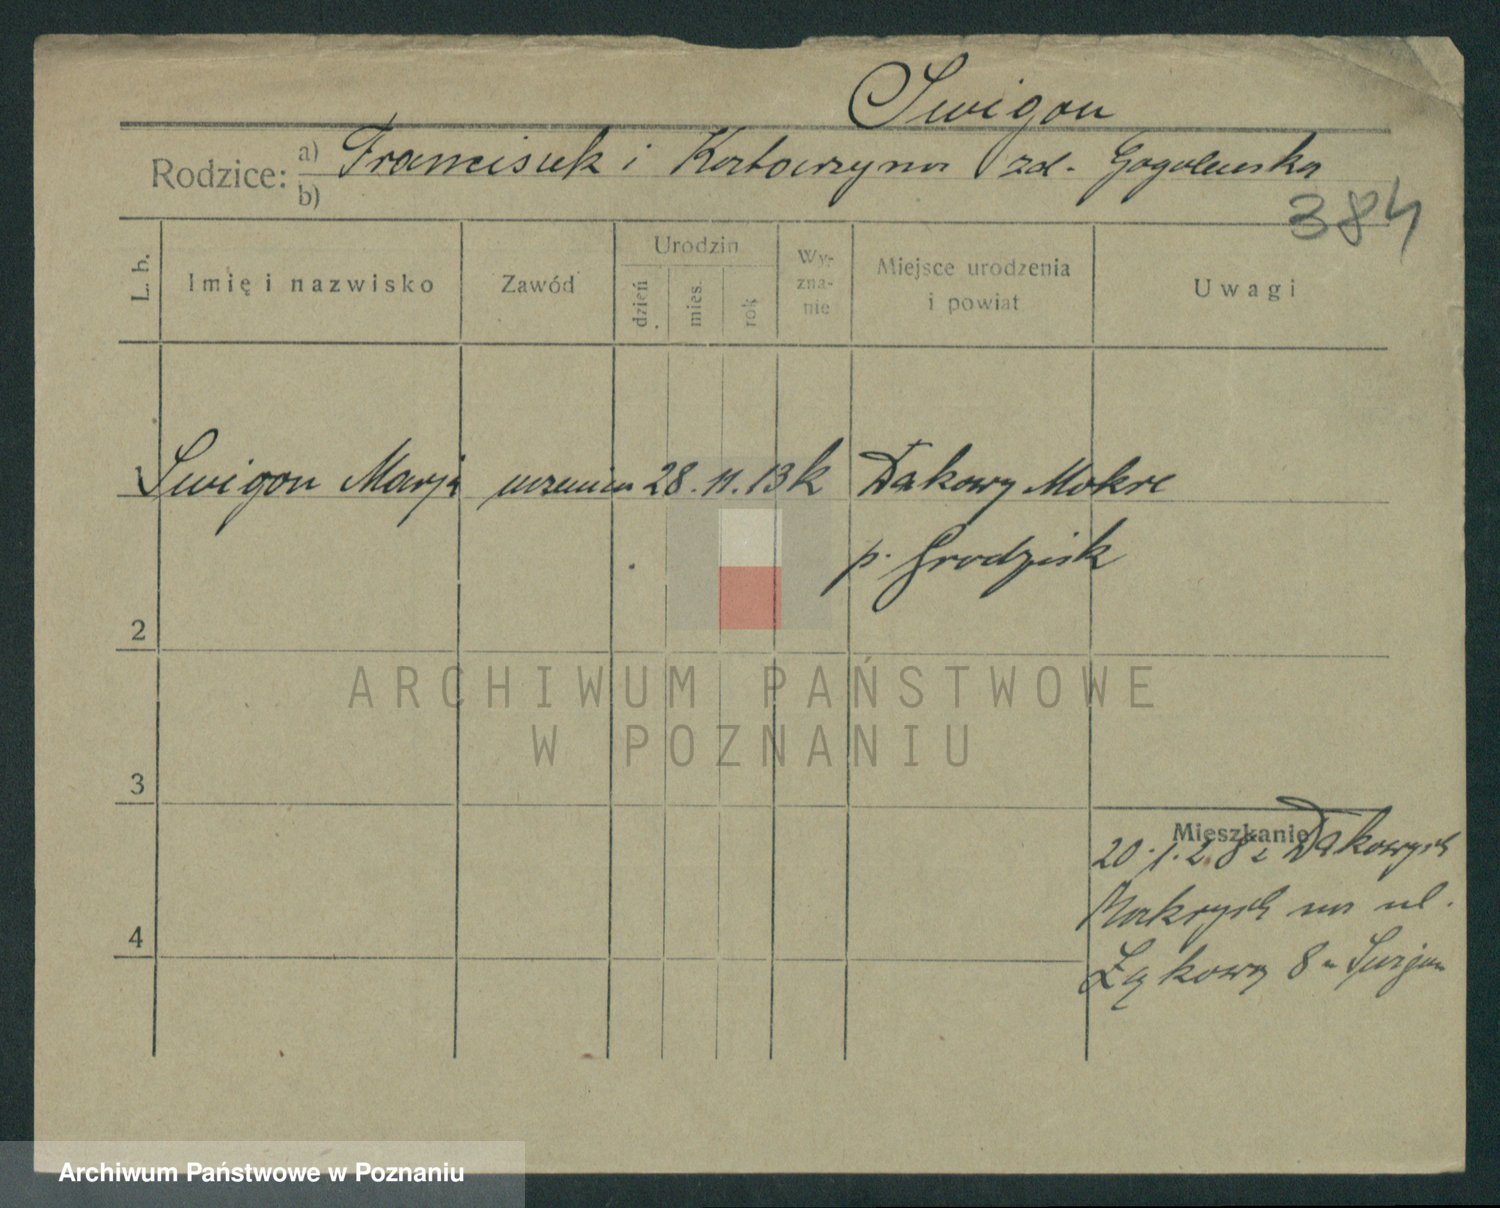 Swigon
Rodzice: a) Franciszek i Katarzyna zd. Gogolewska
b)
384
L. b. Imię i nazwisko Zawód Urodzin dzień mies. rok Wy-zna-nie Miejsce urodzenia i powiat Uwagi
1 Swigon Marja uczenica 28. 11. 13 k Dakowy Mokre
p. Grodzisk
2
ARCHIWUM PAŃSTWOWE
W POZNANIU
3
Mieszkanie
20.1.28 z Dakowych
Mokrych na ul.
Łąkową 8 u Swigon
4
Archiwum Państwowe w Poznaniu